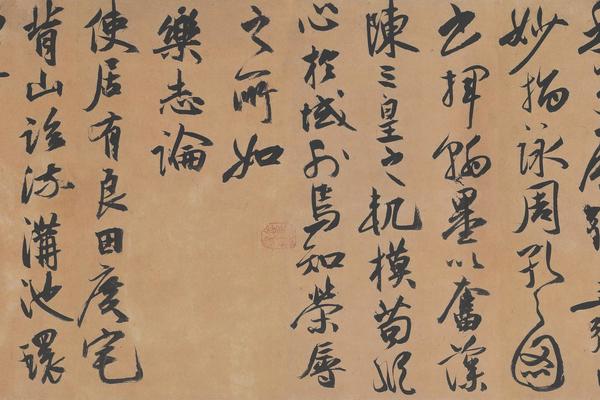 妙指詠周孔之圖
書揮翰墨以奮藻
陳三皇之軌模苟縱
心於域外焉知榮辱
之所如
樂志論
使居有良田廣宅
背山臨流溝池環